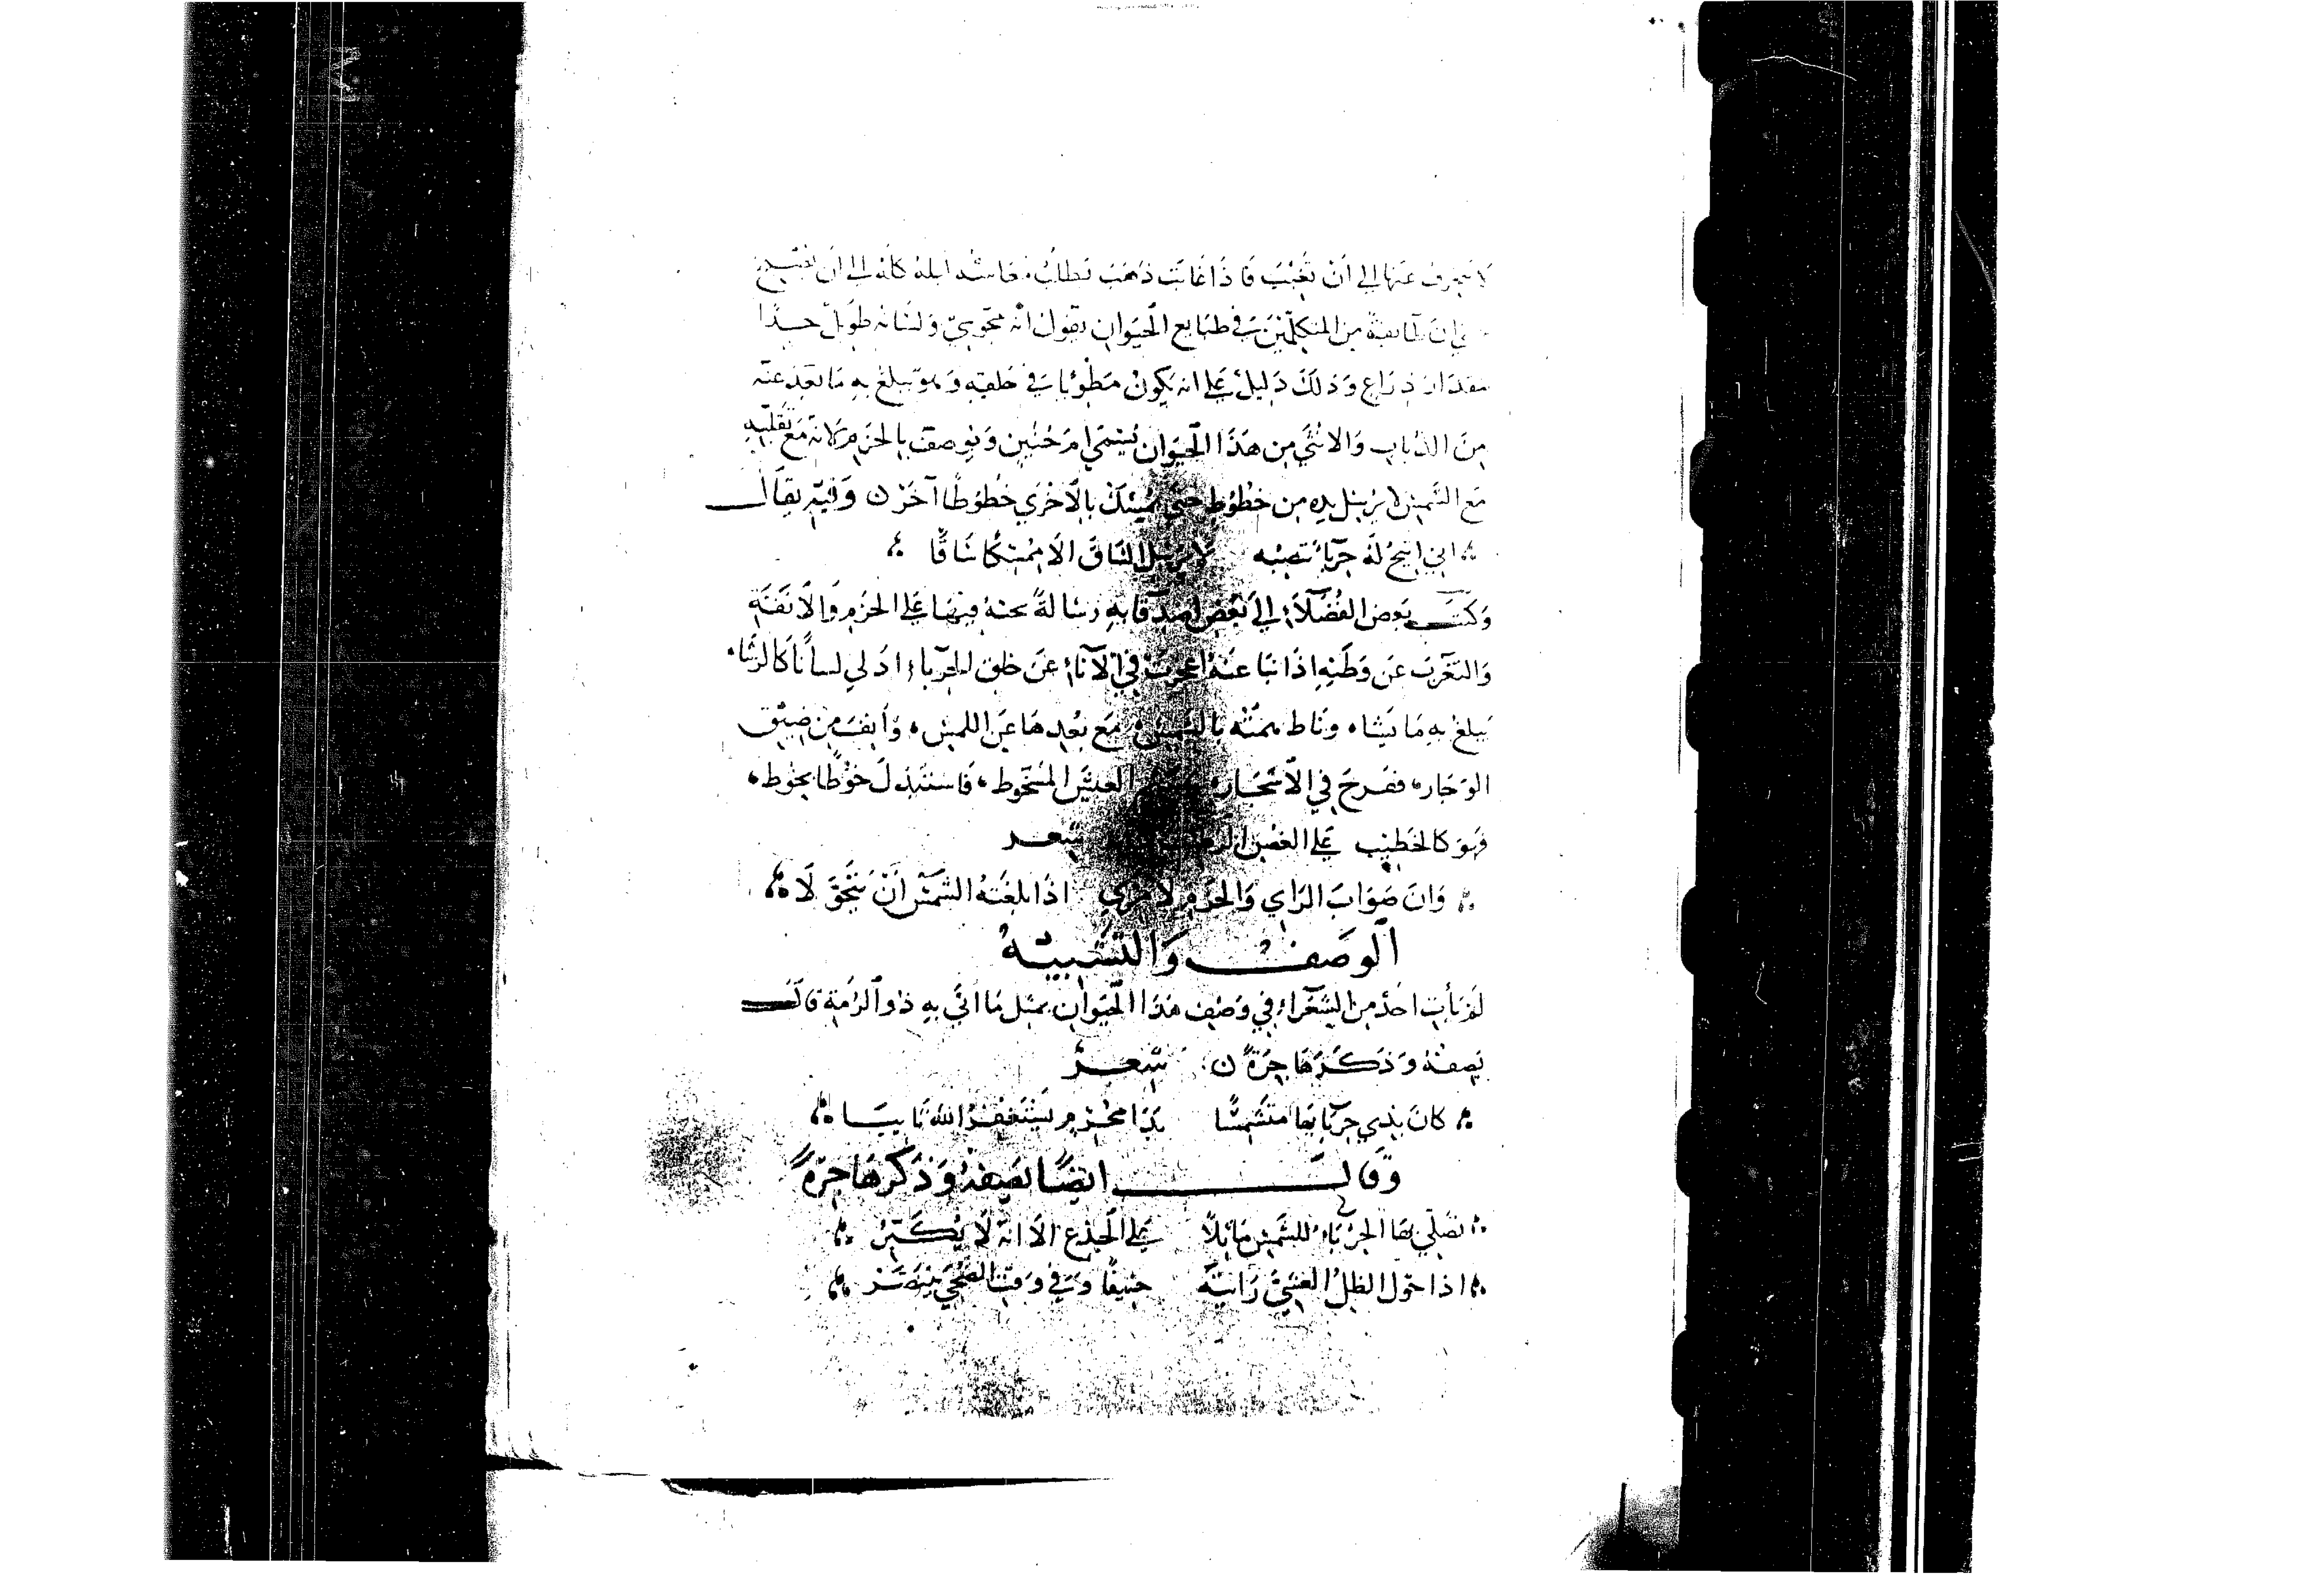 لا ينحرف عنها الي ان تغيب فاذا غابت ذهب يطلب معاشه ليله كله الي ان
ان طايفة من المتكلمين في طبايع الحيوان يقول انه مجوسي ولسانه طويل جدا
مقدار ذراع وذلك دليل علي انه يكون مطويا في خلقته وهو يبلغ به ما بعد عنه
من الذباب والانثي من هذا الحيوان يسمي ام حنين ويوصف بالحزم لانه مع تقلبه
مع الشمس لا يرسل يده من خطوط حتي يمسك بالاخري خطوطا آخر ن وفيه يقال
اني اتيح له حرباء تنضبه لا يرسل الساق الا ممسكا ساقا
وكتب بعض الفضلاء الي بعض اصدقايه رسالة يحثه فيها علي الحزم والانفة
والتغرب عن وطنه اذا نبا عنه اعجزت في الاباء عن خلق الحرباء ادلي لسانا كالرشاء
يبلغ به ما يشاء وناط همته بالشمس مع بعدها عن اللمس وانف من ضيق
الوجار ففرخ في الاشجار العيش المسخوط فاستبدل خوطا بخوط
فهو كالخطيب علي الغصن الرطيب شعر
وان صواب الراي والحزم لامري اذا بلغته الشمس ان يتحولا
الوصف والتشبيه
لم يأت احد من الشعراء في وصف هذا الحيوان بمثل ما اتي به ذو الرمة قال
يصفه وذكر هاجرة ن شعر
كان يدي حربايها متشمسا يدا مجرم يستغفر الله تايبا
وقال ايضا يصفه وذكر هاجرة
يصلي بها الحرباء للشمس مايلا علي الجذع الا انه لا يكبر
اذا حول الظل العشي رايته حنيفا وفي وقت الضحي ينتصر